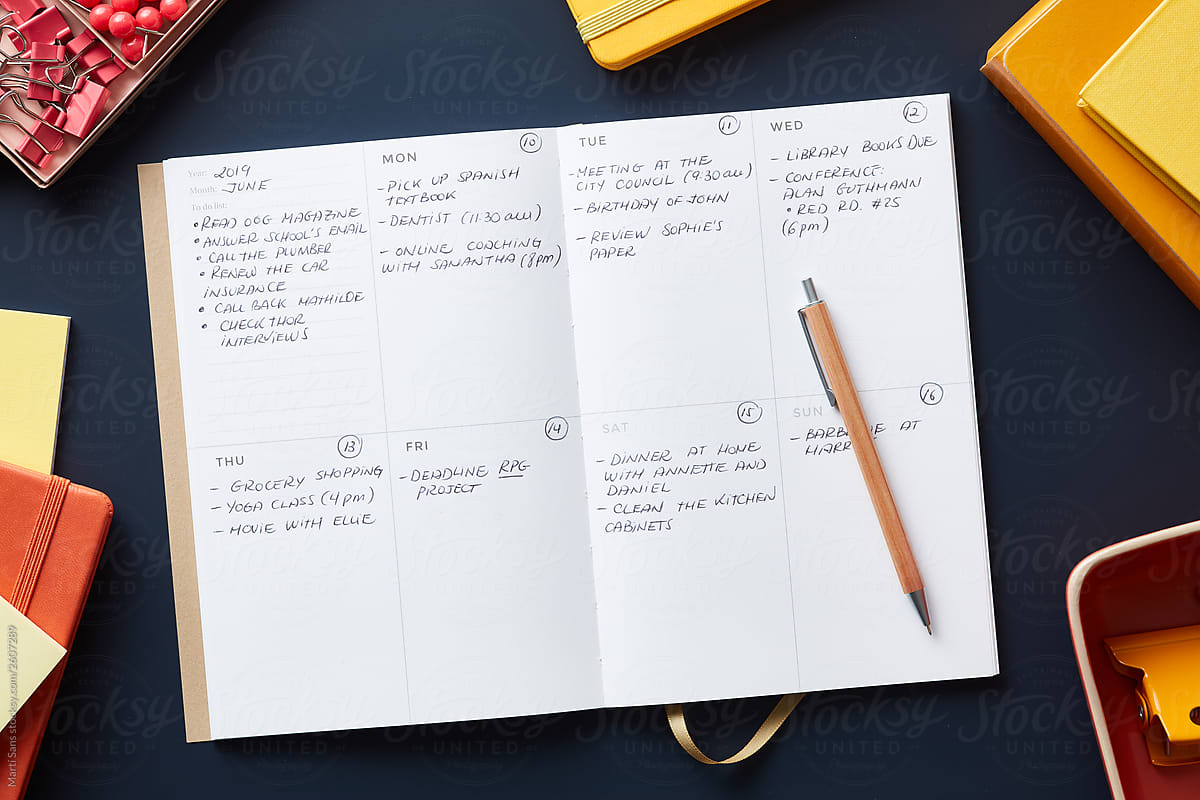 Year: 2019
Month: JUNE
To do list:
• READ OOG MAGAZINE
• ANSWER SCHOOL'S EMAIL
• CALL THE PLUMBER
• RENEW THE CAR
INSURANCE
• CALL BACK MATHILDE
• CHECK THOR
INTERVIEWS
MON 10
- PICK UP SPANISH
TEXTBOOK
- DENTIST (11:30 am)
- ONLINE COACHING
WITH SAMANTHA (8pm)
TUE 11
- MEETING AT THE
CITY COUNCIL (9:30 am)
- BIRTHDAY OF JOHN
- REVIEW SOPHIE'S
PAPER
WED 12
- LIBRARY BOOKS DUE
- CONFERENCE:
ALAN GUTHMANN
• RED RD. #25
(6pm)
THU 13
- GROCERY SHOPPING
- YOGA CLASS (4pm)
- MOVIE WITH ELLIE
FRI 14
- DEADLINE RPG
PROJECT
SAT 15
- DINNER AT HOME
WITH ANNETTE AND
DANIEL
- CLEAN THE KITCHEN
CABINETS
SUN 16
- AT
Stocksy
UNITED
Marti Sans stocksy.com/2607289